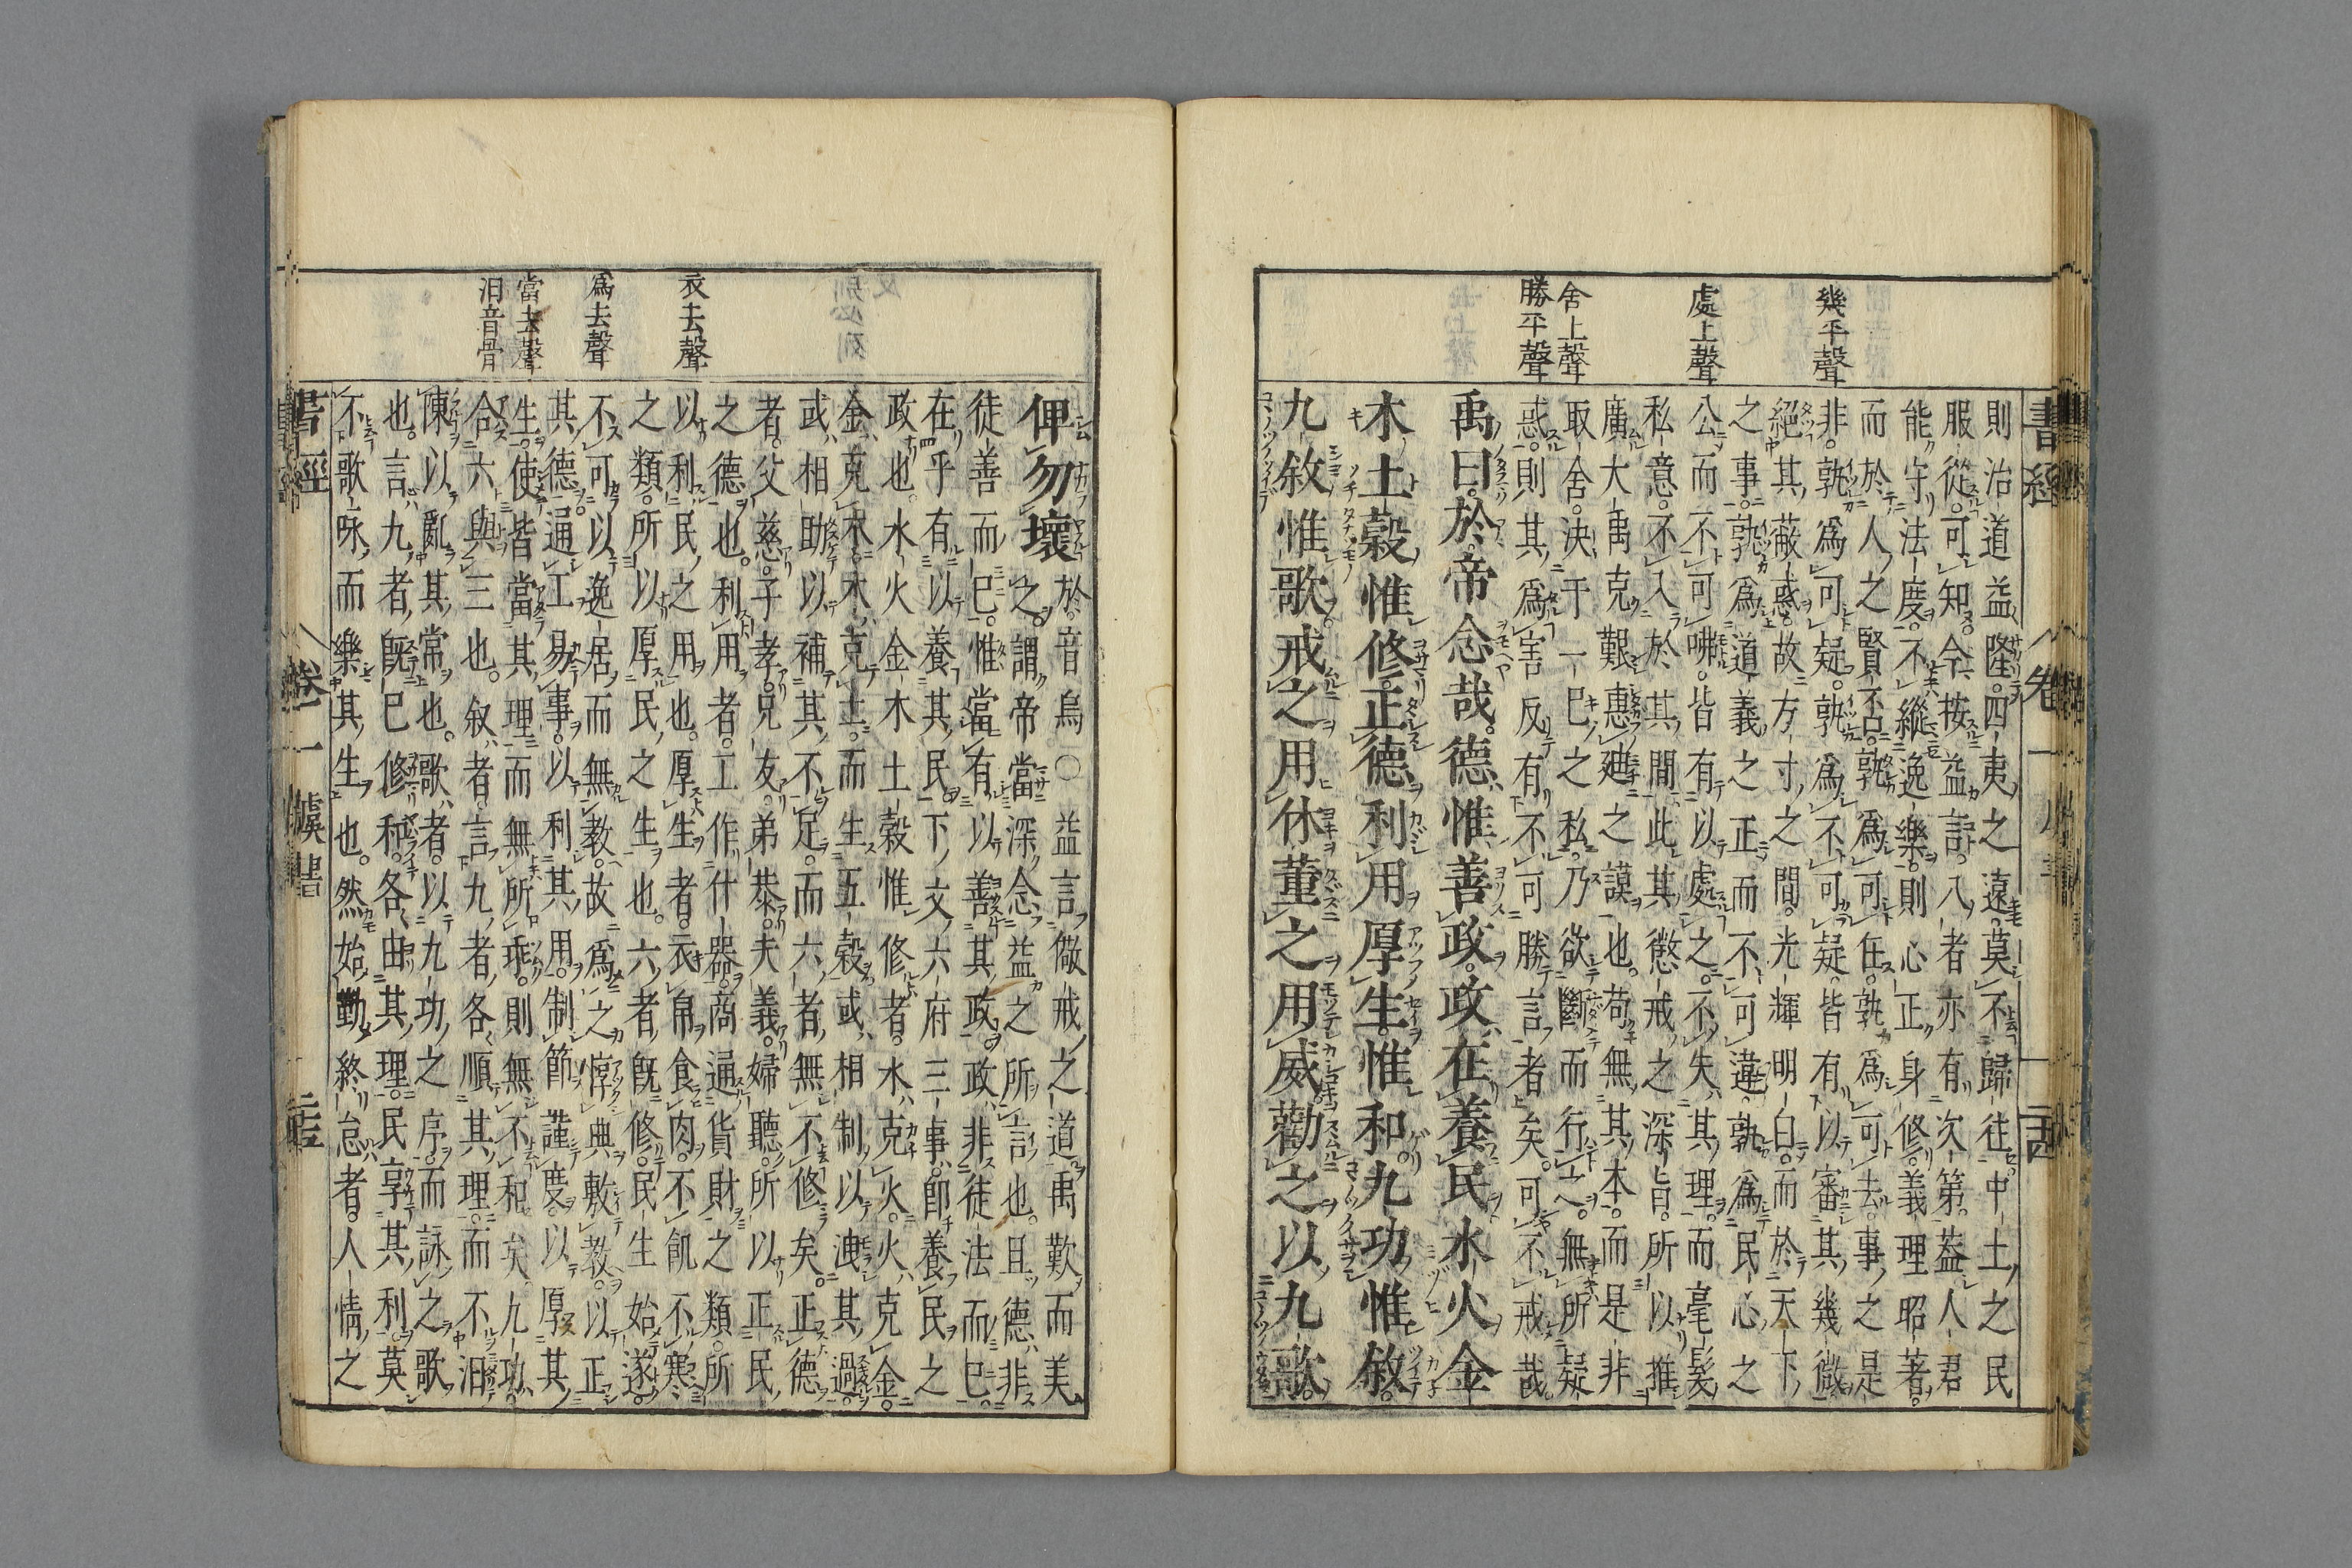 幾平聲
處上聲
舍上聲
勝平聲
書經 卷一
則治道益隆。四夷之遠。莫不歸往中土之民
服從可知。今按益言八者亦有次第。蓋人君
能守法度。不縱逸樂。則心正身修。義理昭著。
而於人之賢否。孰爲可任。孰爲可去。事之是
非。孰爲可疑。孰爲不可疑。皆有以審其幾微。
絕其蔽惑。故方寸之間。光輝明白。而於天下
之事。孰爲道義之正而不可違。孰爲民心之
公而不可咈。皆有以處之。不失其理。而毫髮
私意。不入於其間。此其懲戒之深旨。所以推
廣大禹克艱惠廸之謨也。苟無其本。而是非
取舍。決于一已之私。乃欲斷而行之。無所疑
惑。則其爲害反有不可勝言者矣。可不戒哉。
禹曰。於。帝念哉。德惟善政。政在養民。水火金
木土穀惟修。正德利用厚生惟和。九功惟敘。
九敘惟歌。戒之用休。董之用威。勸之以九歌。
衣去聲
爲去聲
當去聲
汨音骨
俾勿壞。於音烏○益言儆戒之道。禹歎而美
之。謂帝當深念益之所言也。且德非
徒善而已。惟當有以善其政。政非徒法而已。
在乎有以養其民。下文六府三事。即養民之
政也。水火金木土穀惟修者。水克火。火克金。
金克木。木克土。而生五穀。或相制以洩其過。
或相助以補其不足。而六者無不修矣。正德
者。父慈。子孝。兄友。弟恭。夫義。婦聽。所以正民
之德也。利用者。工作什器。商通貨財之類。所
以利民之用也。厚生者。衣帛食肉。不飢不寒
之類。所以厚民之生也。六者既修。民生始遂。
不可以逸居而無教。故爲之惇典敷教。以正
其德。通工易事。以利其用。制節謹度。以厚其
生。使皆當其理而無所乖。則無不和矣。九功。
合六與三也。叙者。言九者各順其理。而不汨
陳以亂其常也。歌者。以九功之序。而詠之歌
也。言九者既已修和。各由其理。民享其利。莫
不歌咏而樂其生也。然始勤終怠者。人情之
書經 卷一 虞書